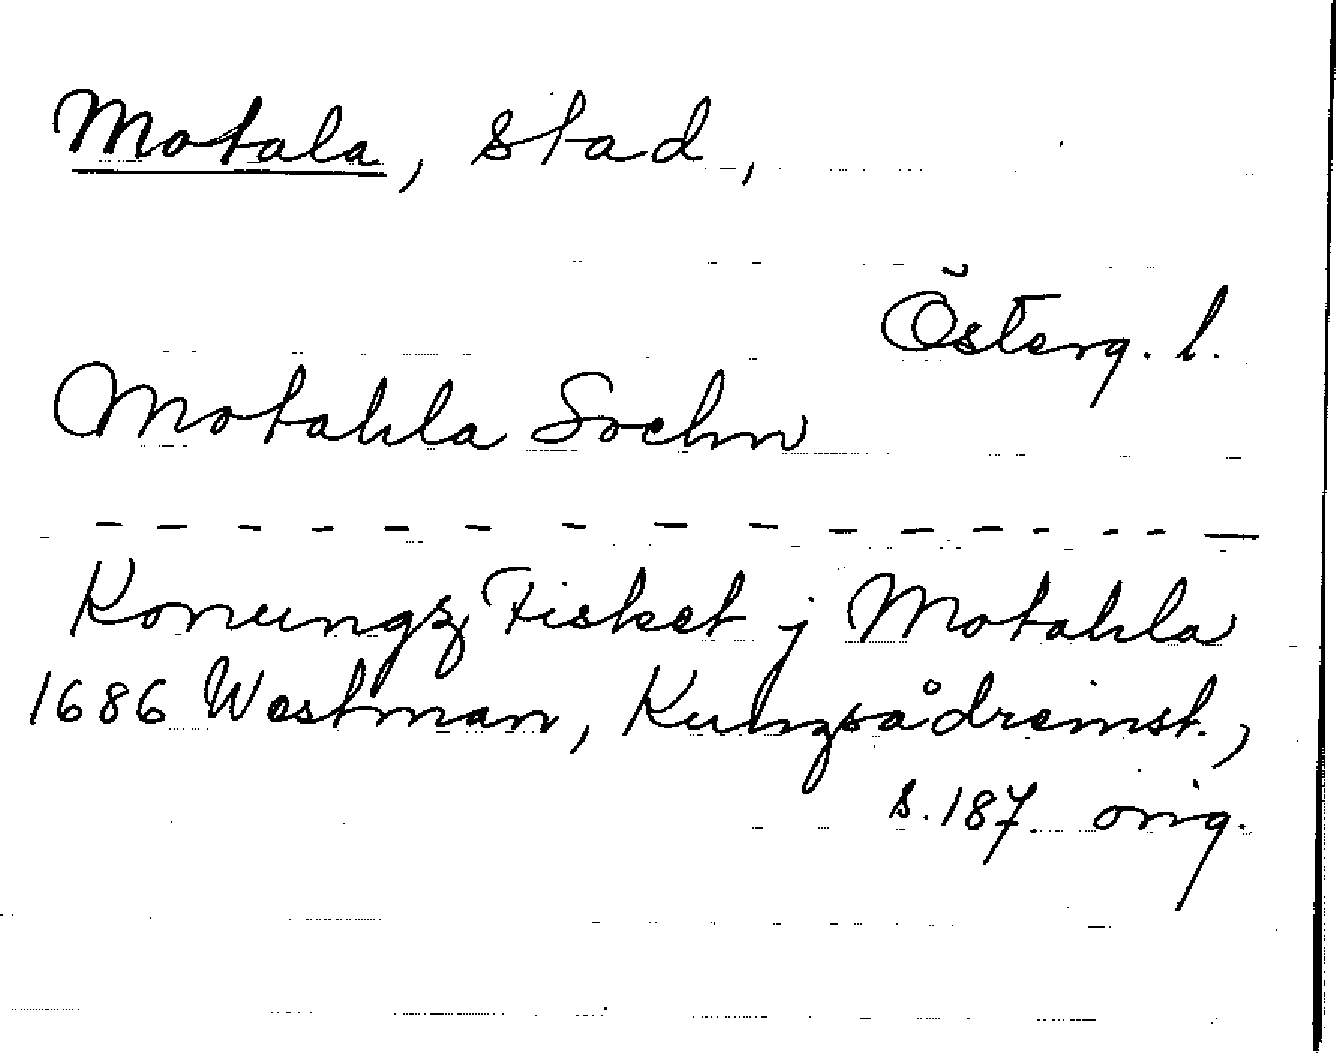 Motala, stad,
Österg. l.
Motahla Sochn
- - - - - - - - - - - - - - -
Konungz Fisket j Motahla
1686 Westman, Kungsådreinst.,
s. 187 orig.